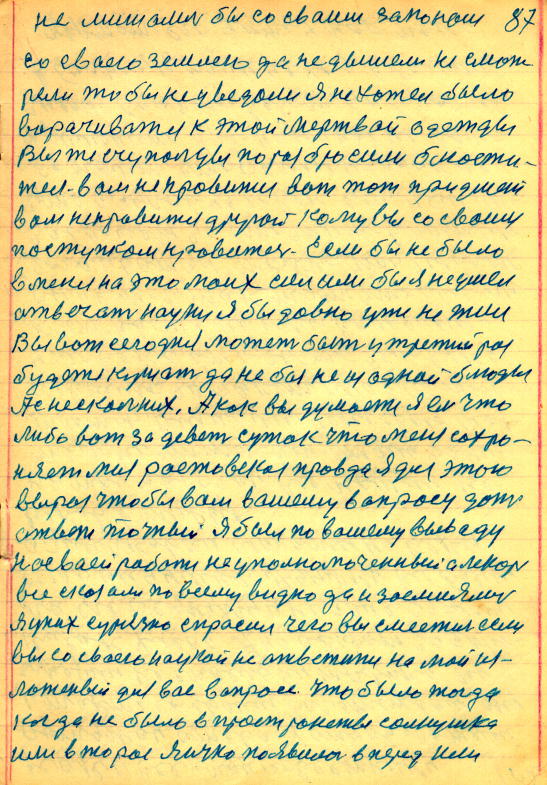 не мишами бы со своим законом 87
со своего землею да не дышели не смот
рели то бы не уведоли Я не хотел было
ворачиватся к этой мертвой одежды
Вы же счупалцы по раз бросили б кости-
тел-вам не провится вот тот пришлой
вам не нравится другой кому вы со своим
поступком нравитес- Если бы не было
в меня на это моих сил или бы я не умел
отвечат науки я бы довно уже не жил
Вы вот сегодня может быт и третий раз
будете кушат да не бы не из одной блюды
А несколких, А как вы думаете Я ем что
либо вот за девет суток что меня сохро-
няет моя ростовская правда Я для этого
вырос чтобы вам вашему вопросу дат
ответ точный Я был по вашему выводу
на своей работи неуполномоченный а лекар
все сказали по всему видно да и засмиялис
Я у них сурёзно спрасил чего вы смеетися если
вы со своего наукай не ответити на мой из-
ложеный для вас вопрос. Что было тогда
когда не было в простронстви солнушка
или второе Яичко появилос вперед или